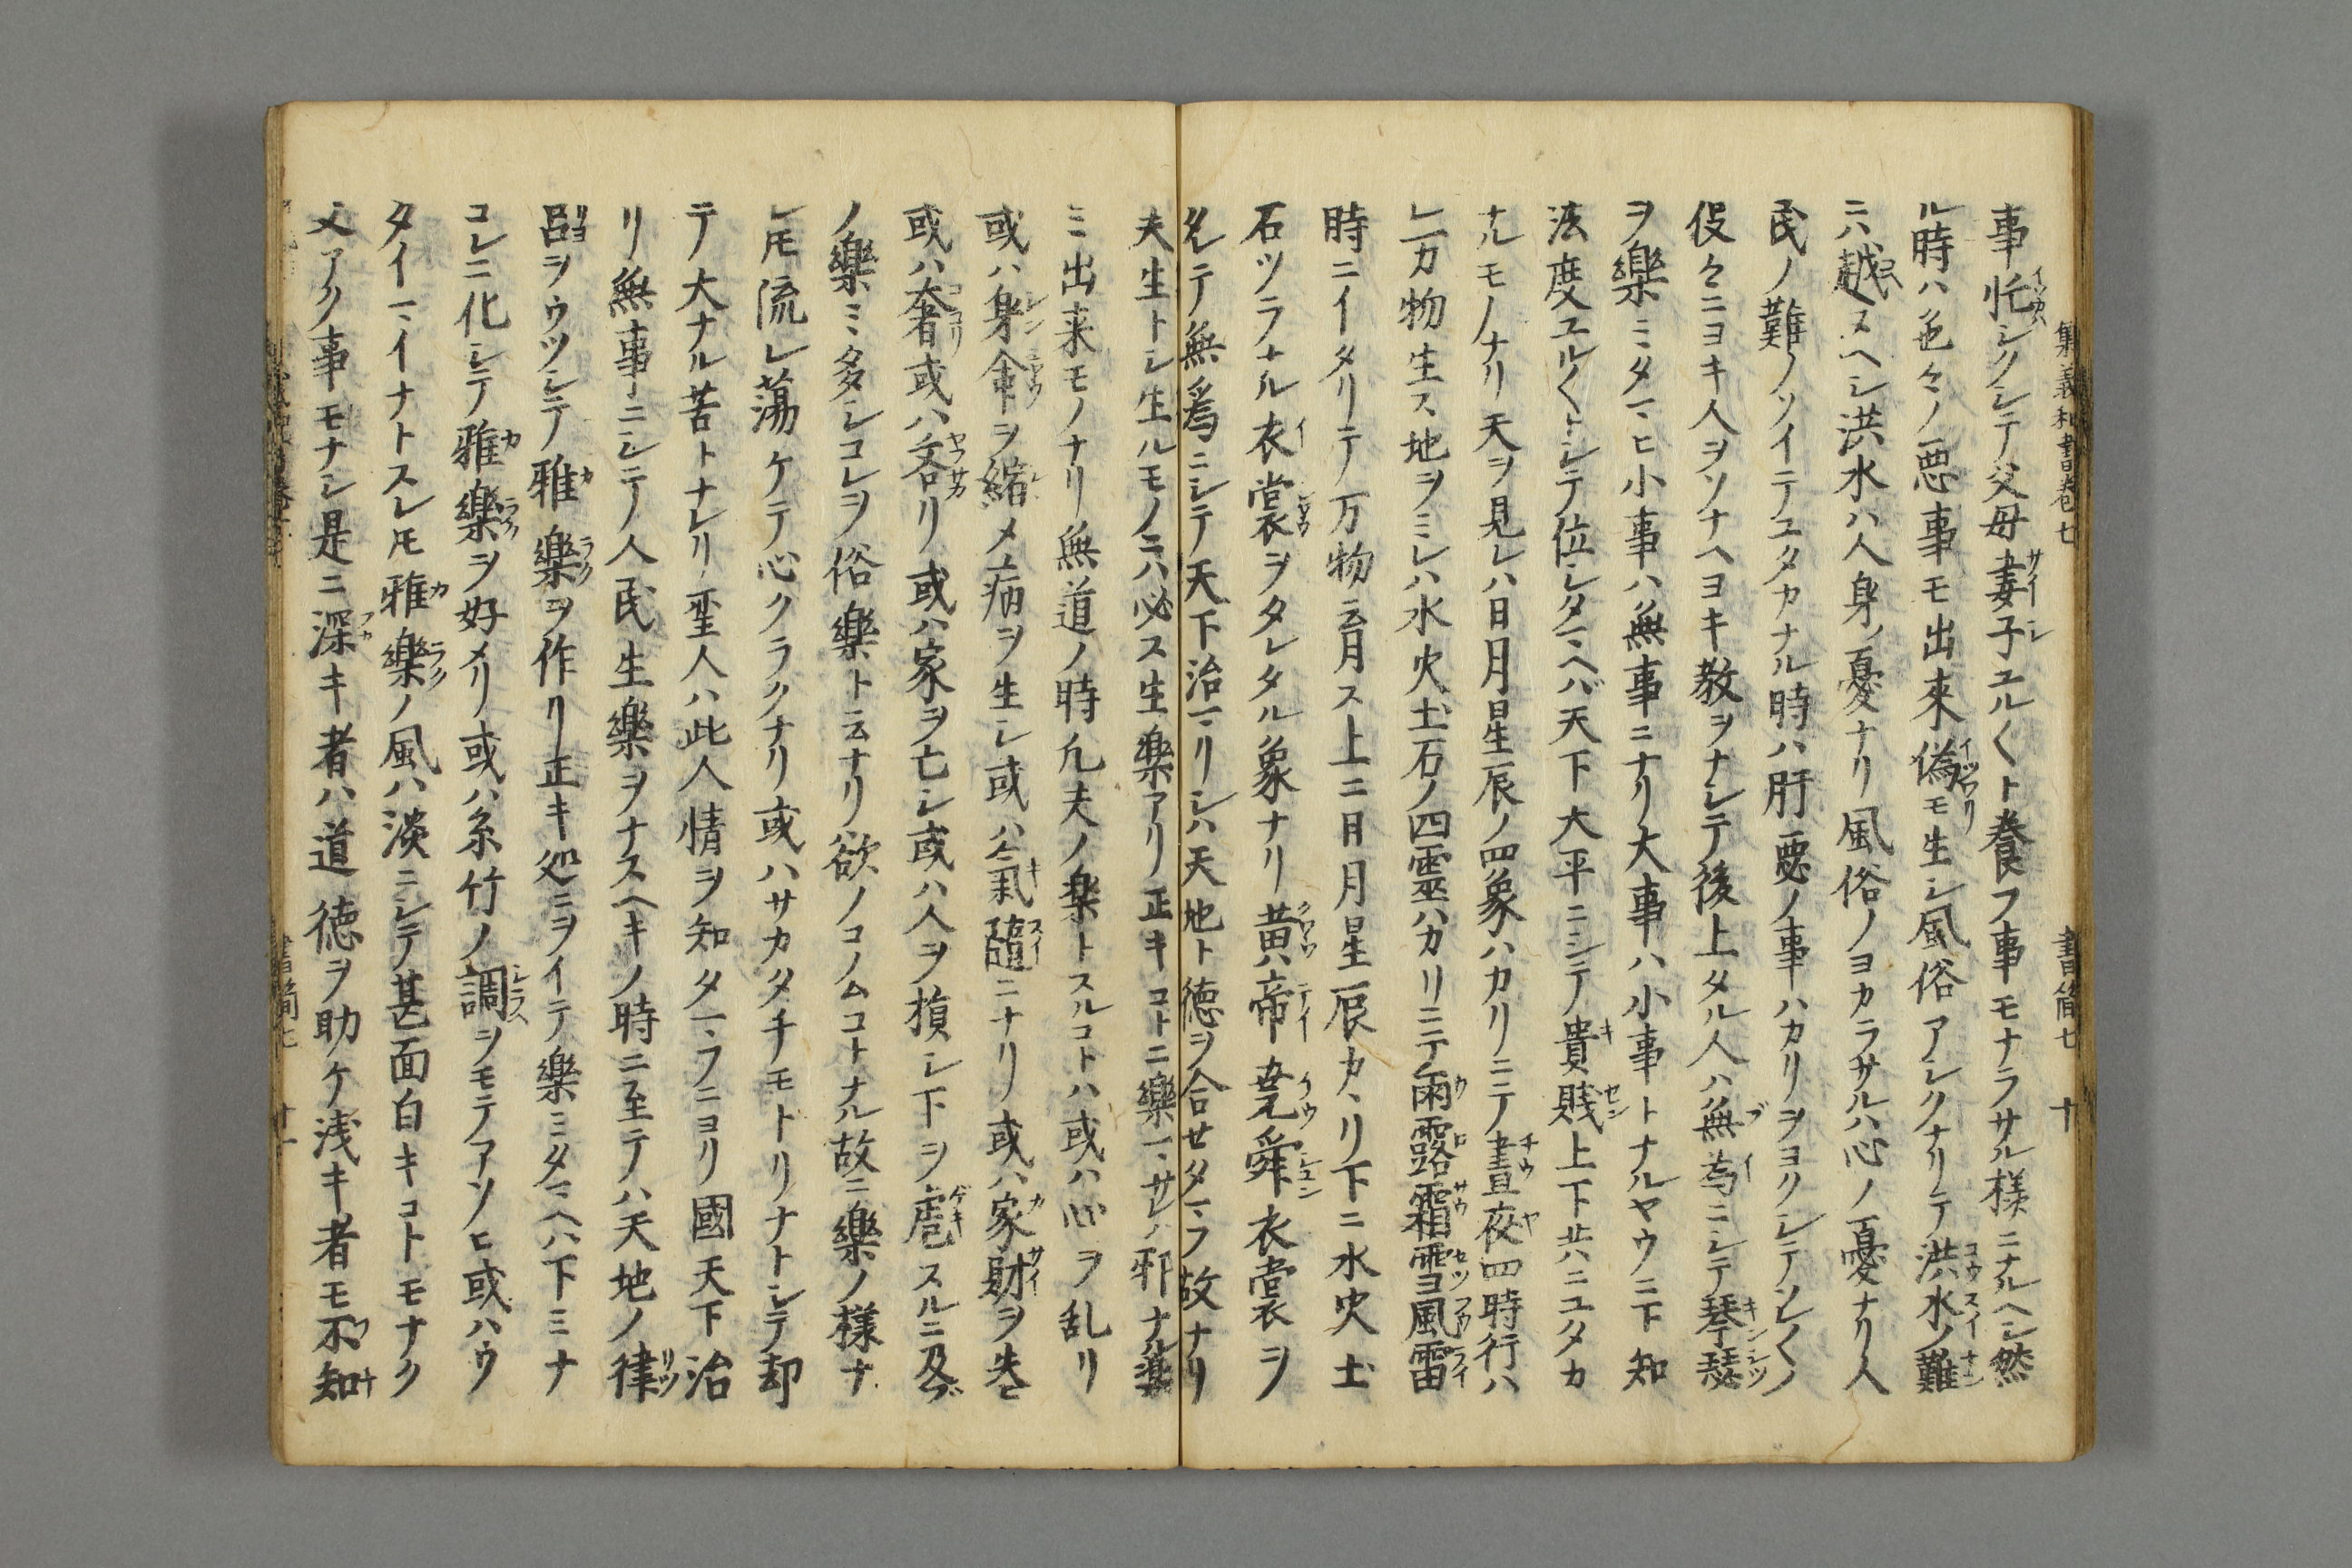 集義和書巻七　書簡七　十
事忙シクシテ父母妻子ユル〱ト養フ事モナラサル様ニナルヘシ然
ル時ハ色々ノ悪事モ出來偽モ生シ風俗アシクナリテ洪水ノ難
ニハ越スヘシ洪水ハ人身ノ憂ナリ風俗ノヨカラサルハ心ノ憂ナリ人
民ノ難ノソイテユタカナル時ハ肝要ノ事ハカリヲヨクシテソレ〱ノ
役々ニヨキ人ヲソナヘヨキ教ヲナシテ後上タル人ハ無為ニシテ琴瑟
ヲ樂ミタマヒ小事ハ無事ニナリ大事ハ小事トナルヤウニ下知
法度ユル〱トシテ位シタマヘバ天下大平ニシテ貴賎上下共ニユタカ
ナルモノナリ天ヲ見レハ日月星辰ノ四象ハカリニテ晝夜四時行ハ
レ万物生ス地ヲミレハ水火土石ノ四靈ハカリニテ雨露霜雪風雷
時ニイタリテ万物云月ス上ニ日月星辰カヽリ下ニ水火土
石ツラナル衣裳ヲタレタル象ナリ黄帝堯舜衣裳ヲ
タレテ無為ニシテ天下治マリシハ天地ト徳ヲ合セタマフ故ナリ
夫生トシ生ルモノニハ必ス生樂アリ正キコトニ樂マサレハ邪ナル樂
ミ出来モノナリ無道ノ時凢夫ノ樂トスルコトハ或ハ心ヲ乱リ
或ハ身命ヲ縮メ病ヲ生シ或ハ氣隨ニナリ或ハ家財ヲ失ヒ
或ハ奢或ハ吝リ或ハ家ヲ亡シ或ハ人ヲ損シ下ヲ虐スルニ及ブ
ノ樂ミ多シコレヲ俗樂ト云ナリ欲ノコノムコトナル故ニ樂ノ様ナ
レ𪜈流レ蕩ケテ心クラクナリ或ハサカタチモトリナトシテ却
テ大ナル苦トナレリ聖人ハ此人情ヲ知タマフニヨリ國天下治
リ無事ニシテ人民生樂ヲナスヘキノ時ニ至テハ天地ノ律
呂ヲウツシテ雅樂ヲ作リ正キ処ニヲイテ樂ミタマヘハ下ミナ
コレニ化シテ雅樂ヲ好メリ或ハ糸竹ノ調ヲモテアソヒ或ハウ
タイマイナトスレ𪜈雅樂ノ風ハ淡ニシテ甚面白キコトモナク
又アク事モナシ是ニ深キ者ハ道徳ヲ助ケ浅キ者モ不知
書簡七　十一